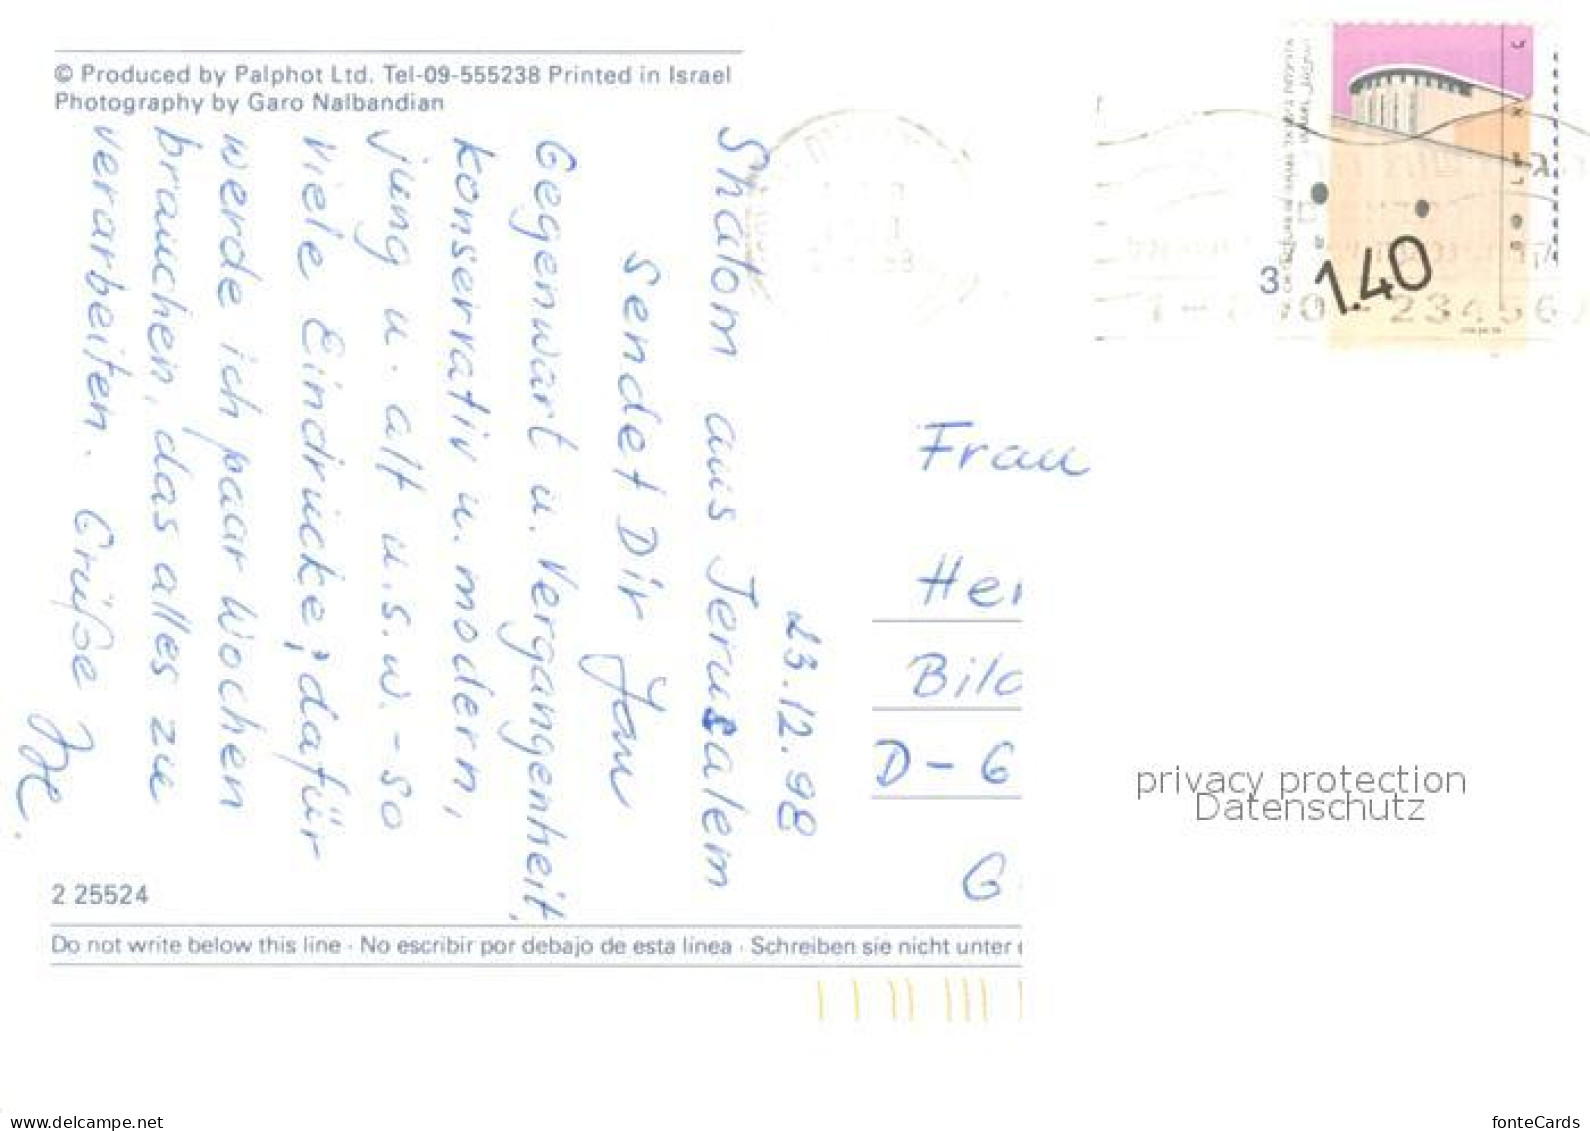 © Produced by Palphot Ltd. Tel-09-555238 Printed in Israel
Photography by Garo Nalbandian
23.12.98
Shalom aus Jerusalem
sendet Dir
Gegenwart u. Vergangenheit,
konservativ u. modern,
jung u. alt u.s.w. - so
viele Eindrücke; dafür
werde ich paar Wochen
brauchen, das alles zu
verarbeiten. Grüße
Frau
Her
Bild
D - 6
G
3
1.40
privacy protection
Datenschutz
2 25524
Do not write below this line · No escribir por debajo de esta linea · Schreiben sie nicht unter
www.delcampe.net
fonteCards